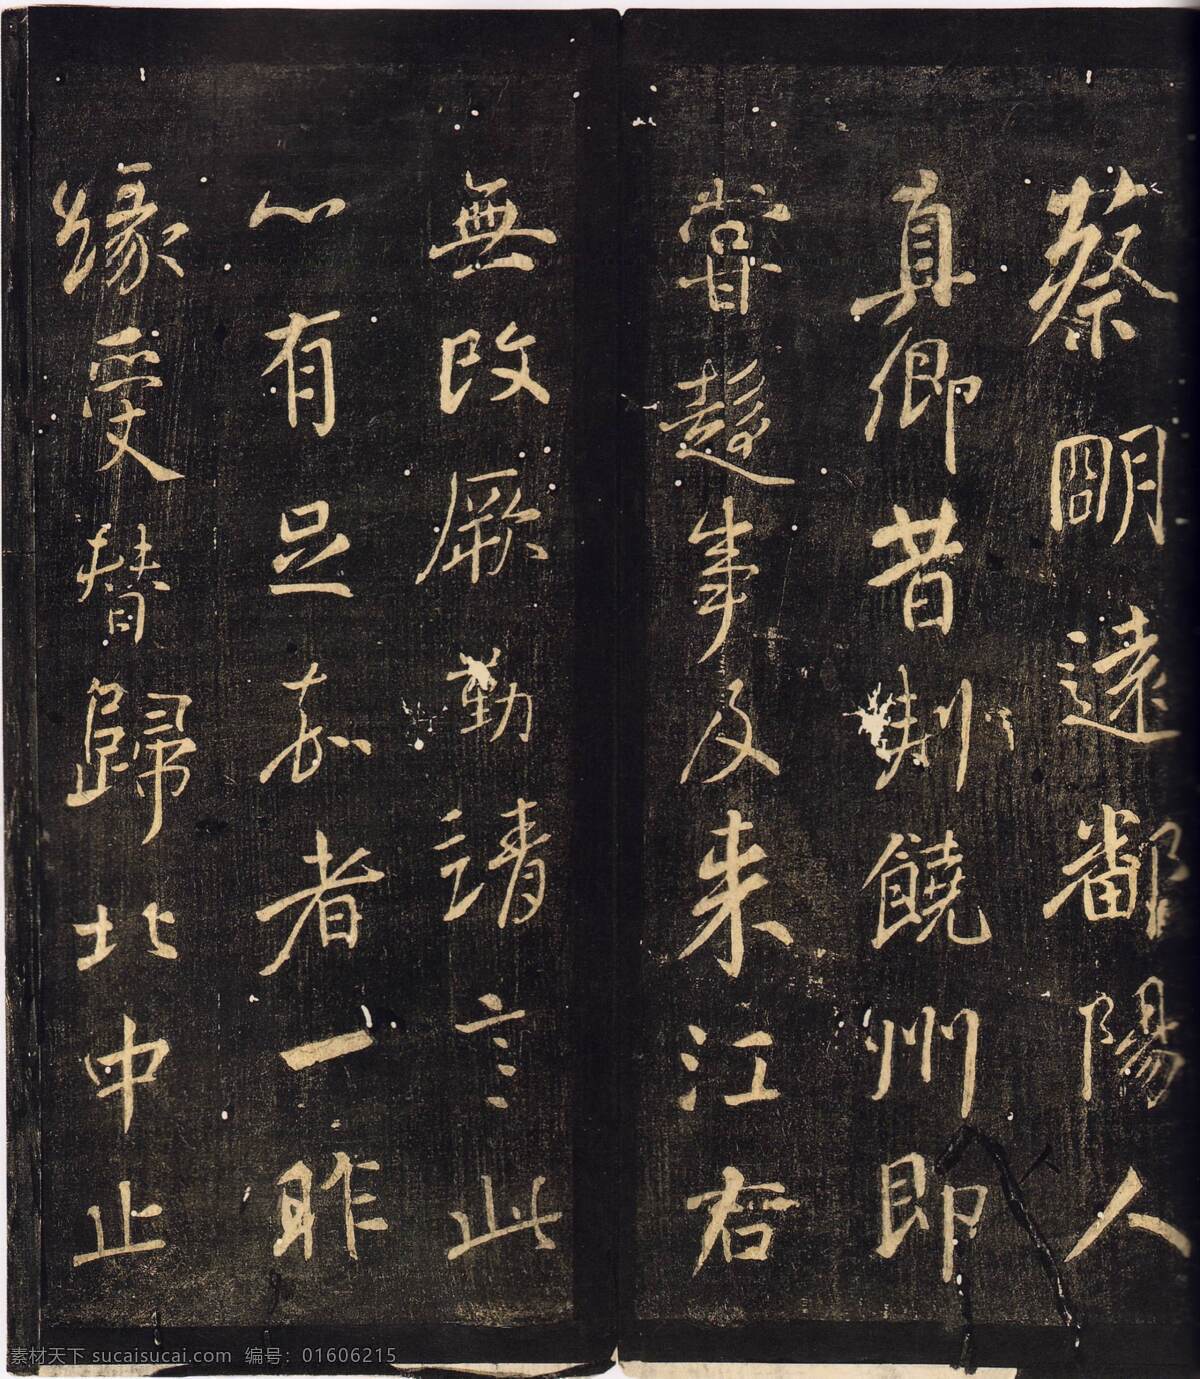 蔡明遠鄱陽人
真卿昔刺饒州即
嘗趨事及来江右
無改厥勤請言此
心有足嘉者一昨
緣受替歸北中止
素材天下 sucaisucai.com 编号：01606215